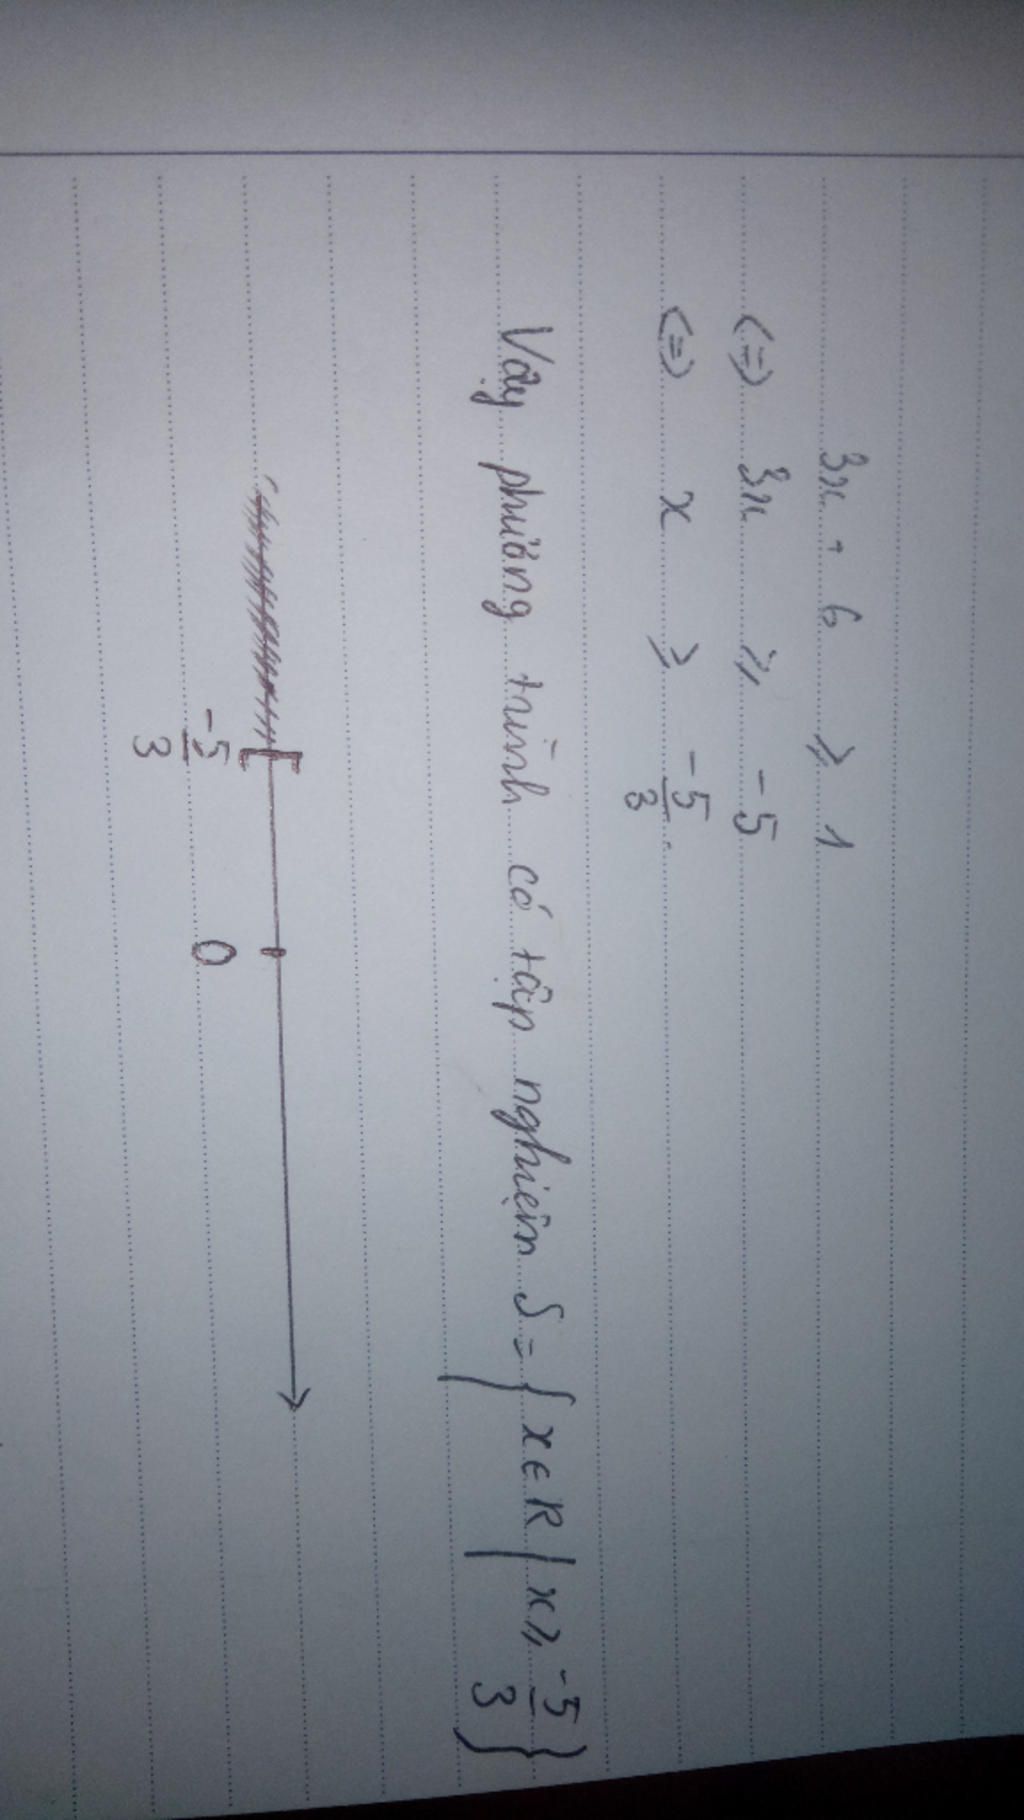 3x + 6 ⩾ 1
(=) 3x ⩾ -5
(=) x ⩾ -5/3.
Vậy phương trình có tập nghiệm S = { x ∈ R | x ⩾ -5/3 }
[
-5/3 0